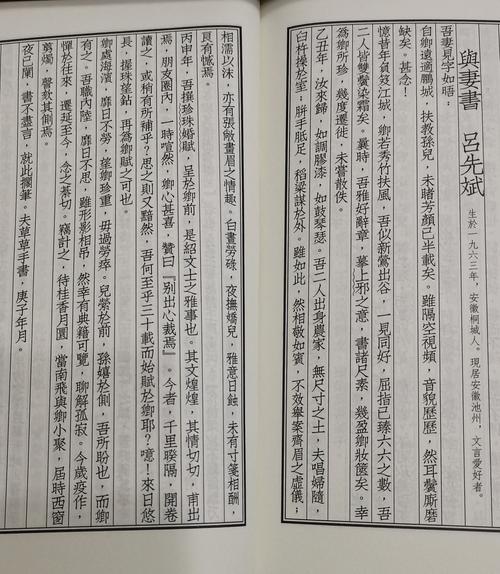 與妻書 呂先斌
生於一九六三年，安徽桐城人。現居安徽池州，文言愛好者。
吾妻見字如晤：
自卿遠適鵬城，扶教孫兒，未睹芳顏已半載矣。雖隔空視頻，音貌歷歷，然耳鬢廝磨
缺矣。甚念！
憶昔年負笈江城，卿若秀竹扶風，吾似新鶯出谷，一見同好，屈指已臻六六之數，吾
二人皆雙鬢染霜矣。曩時，吾雅好辭章，摹上邪之意，書諸尺素，幾盈卿妝篋矣。幸
為卿所珍，幾度遷徙，未嘗散佚。
乙丑年，汝來歸，如調膠漆，如鼓琴瑟。吾二人出身農家，無尺寸之土，夫唱婦隨，
臼杵操於室；胼手胝足，稻粱謀於外。雖如此，然相敬如賓，不效舉案齊眉之虛儀；
相濡以沫，亦有張敞畫眉之情趣。白晝勞碌，夜撫嬌兒，雅意日蝕，未有寸箋相酬，
良有憾焉。
丙申年，吾撰珍珠婚賦，呈於卿前，是紹文士之雅事也。其文煌煌，其情切切，甫出
焉，朋友圈內，一時喧然，卿心甚喜，贊曰『別出心裁焉』。今者，千里暌隔，開卷
讀之，或稍有所補乎？思之則又黯然，吾何至乎三十載而始賦於卿耶？噫！來日悠
長，握珠望鈷，再為卿賦之可也。
卿處海濱，靡日不勞，望卿珍重，毋過勞瘁。兒縈於前，孫嬉於側，吾所盼也，而卿
有之。吾職內陸，靡日不思，雖形影相吊，然幸有典籍可覽，聊解孤寂。今歲疫作，
憚於往來，遷延至今，念之綦切。竊計之，待桂香月圓，當南飛與卿小聚，屆時西窗
剪燭，謦欬其側焉。
夜已闌，書不盡言，就此擱筆。夫草草手書，庚子年月。